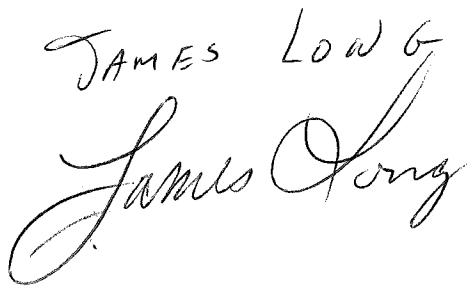 JAMES LONG
James Long